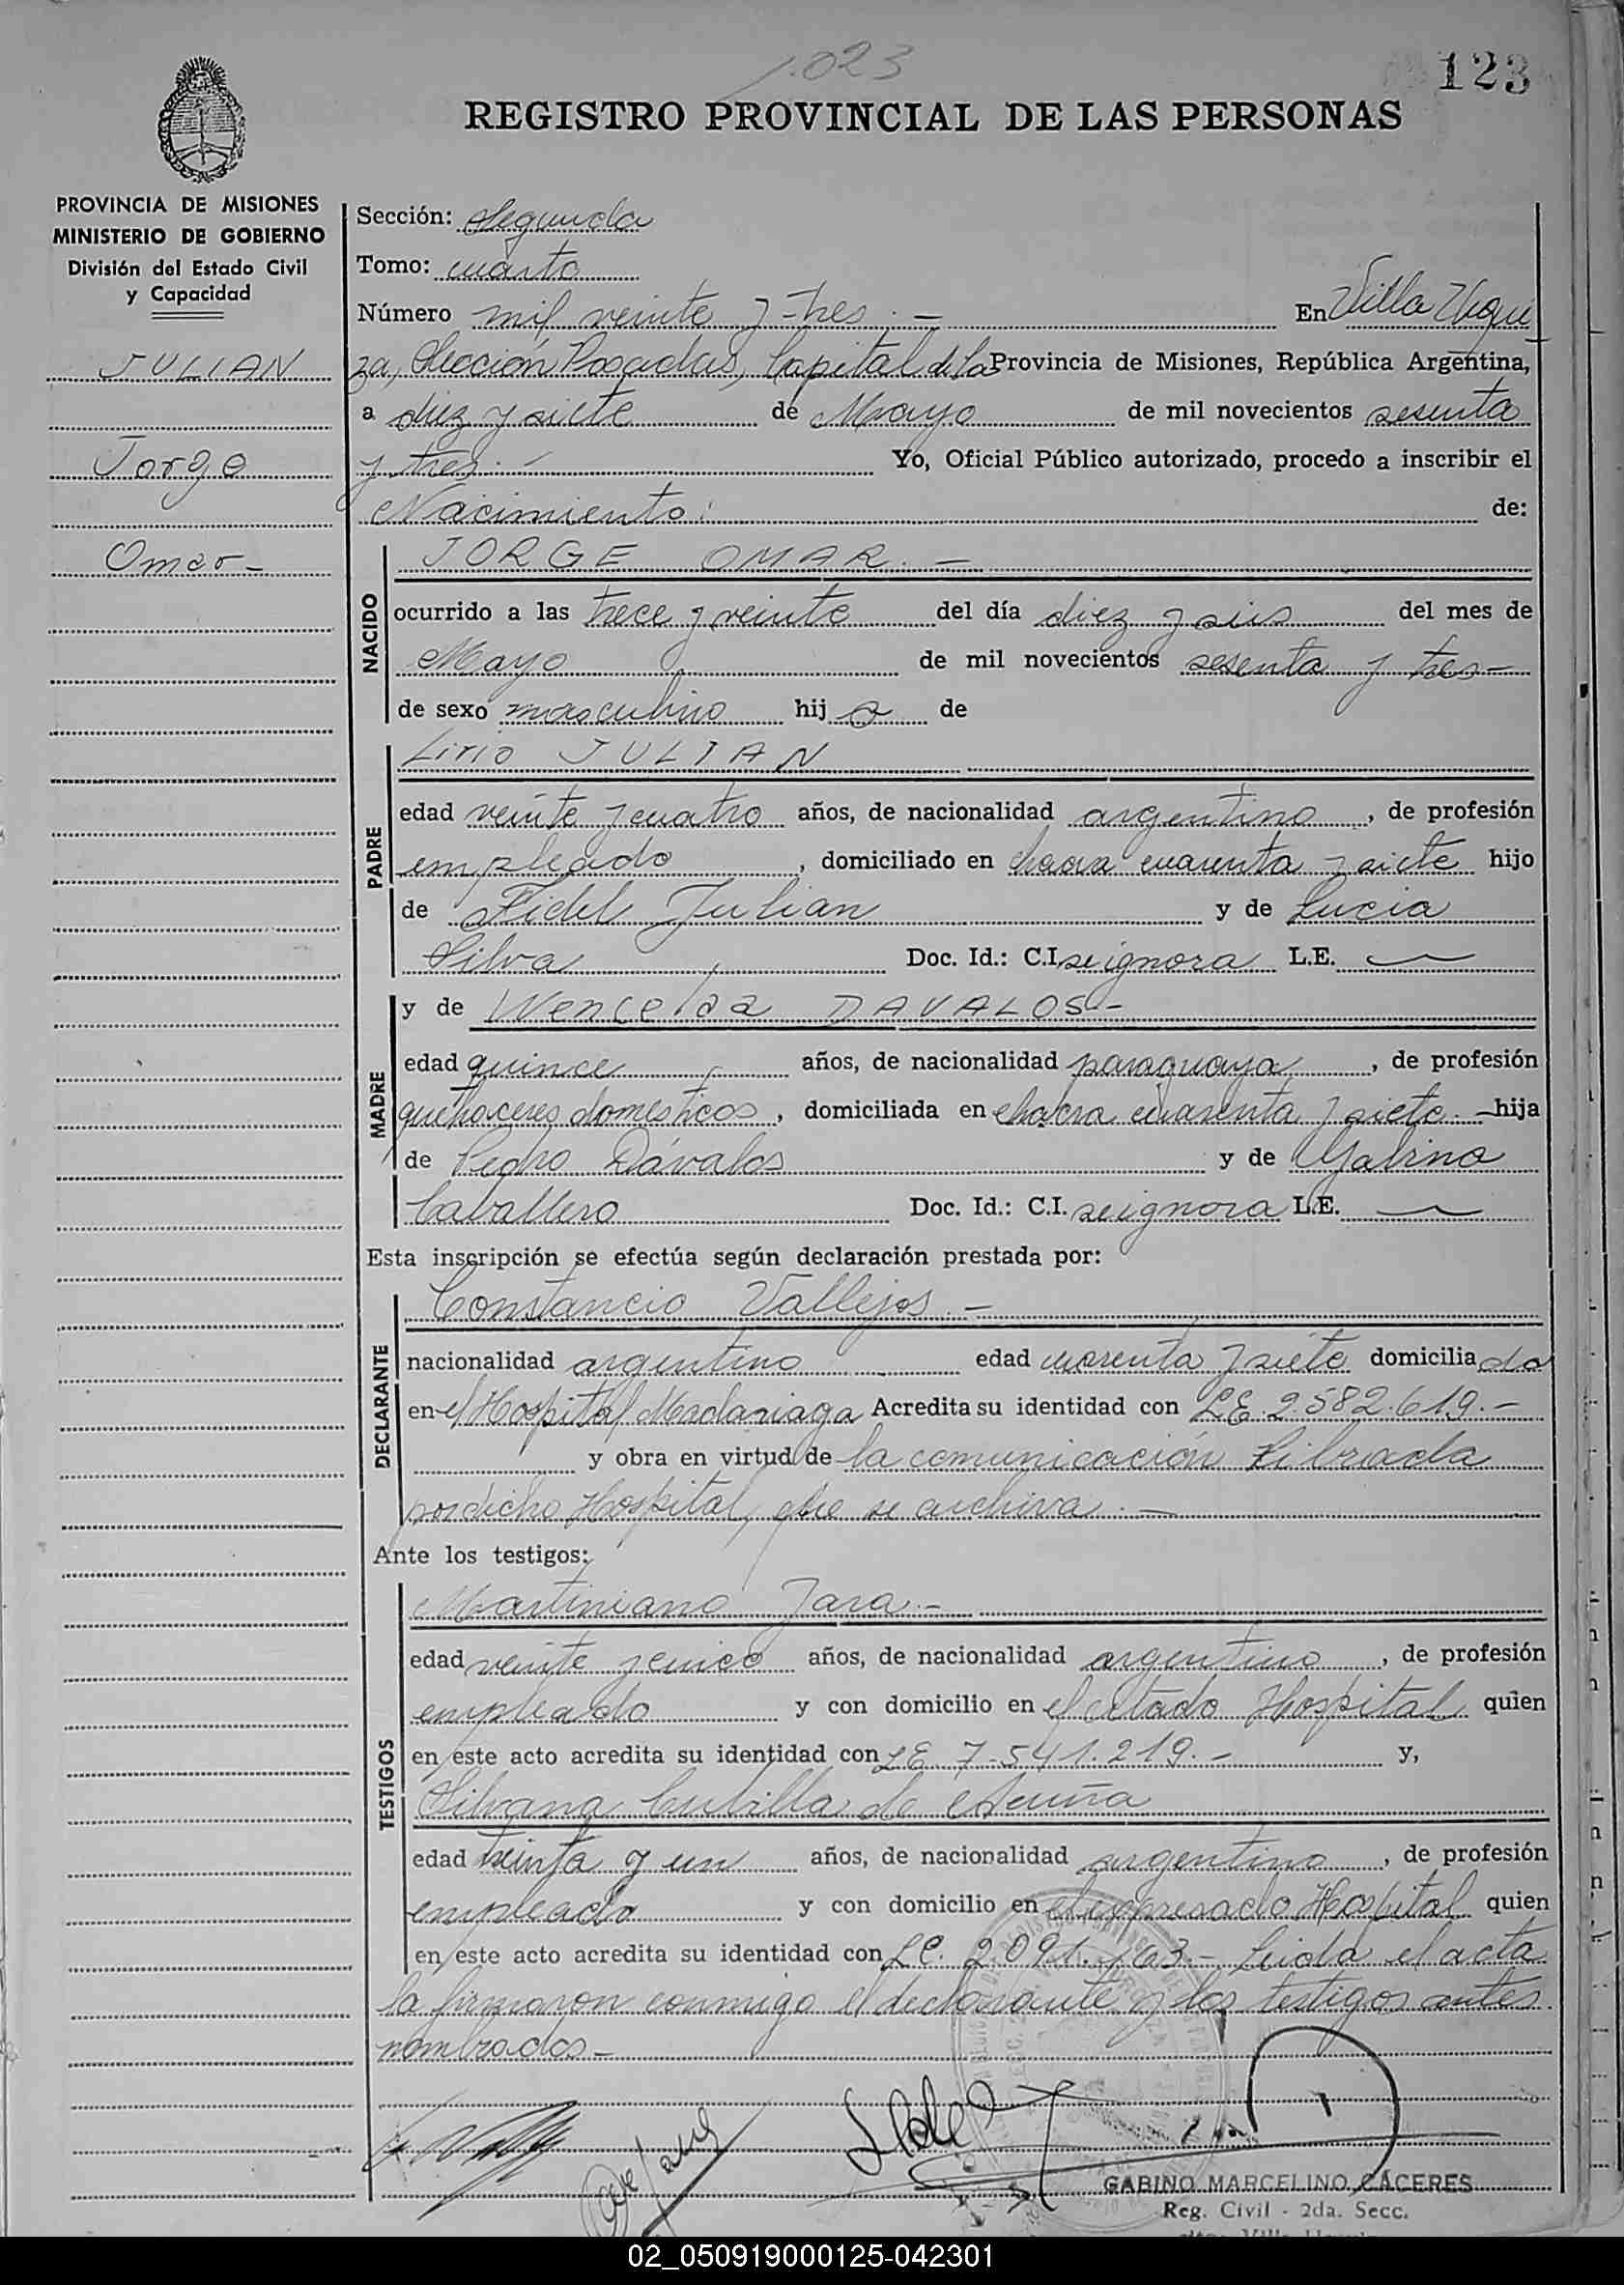 1.023
123
REGISTRO PROVINCIAL DE LAS PERSONAS
PROVINCIA DE MISIONES
MINISTERIO DE GOBIERNO
División del Estado Civil
y Capacidad
JULIAN
Jorge
Omar-
Sección: Segunda
Tomo: cuarto
Número mil veinte y tres.— En Villa Urqui
za, Sección Posadas, Capital de la Provincia de Misiones, República Argentina,
a diez y siete de Mayo de mil novecientos sesenta
y tres.— Yo, Oficial Público autorizado, procedo a inscribir el
Nacimiento: de:
NACIDO
JORGE OMAR.—
ocurrido a las trece y veinte del día diez y seis del mes de
Mayo de mil novecientos sesenta y tres—
de sexo masculino hij o de
PADRE
Lirio JULIAN
edad veinte y cuatro años, de nacionalidad argentino, de profesión
empleado, domiciliado en chacra cuarenta y siete hijo
de Fidel Julian y de Lucia
Silva Doc. Id.: C.I. se ignora L.E. —
MADRE
y de Wencelaa DAVALOS-
edad quince años, de nacionalidad paraguaya, de profesión
quehaceres domesticos, domiciliada en chacra cuarenta y siete.— hija
de Pedro Dávalos y de Galina
Caballero Doc. Id.: C.I. se ignora L.E. —
Esta inscripción se efectúa según declaración prestada por:
DECLARANTE
Constancio Vallejos.—
nacionalidad argentino edad cuarenta y siete domicilia do
en el Hospital Madariaga Acredita su identidad con L.E. 2.582.619.-
y obra en virtud de la comunicación librada
por dicho Hospital, que se archiva.—
Ante los testigos:
TESTIGOS
Martiniano Jara.-
edad veinte y cinco años, de nacionalidad argentino, de profesión
empleado y con domicilio en el citado Hospital quien
en este acto acredita su identidad con LE 7.541.219.- y,
Silvana Cubilla de Acuña
edad treinta y un años, de nacionalidad argentina, de profesión
empleada y con domicilio en el expresado Hospital quien
en este acto acredita su identidad con L.C. 2.091.163.- Leida el acta
la firmaron conmigo el declarante y los testigos antes
nombrados-
GABINO MARCELINO CÁCERES
Reg. Civil - 2da. Secc.
02_050919000125-042301